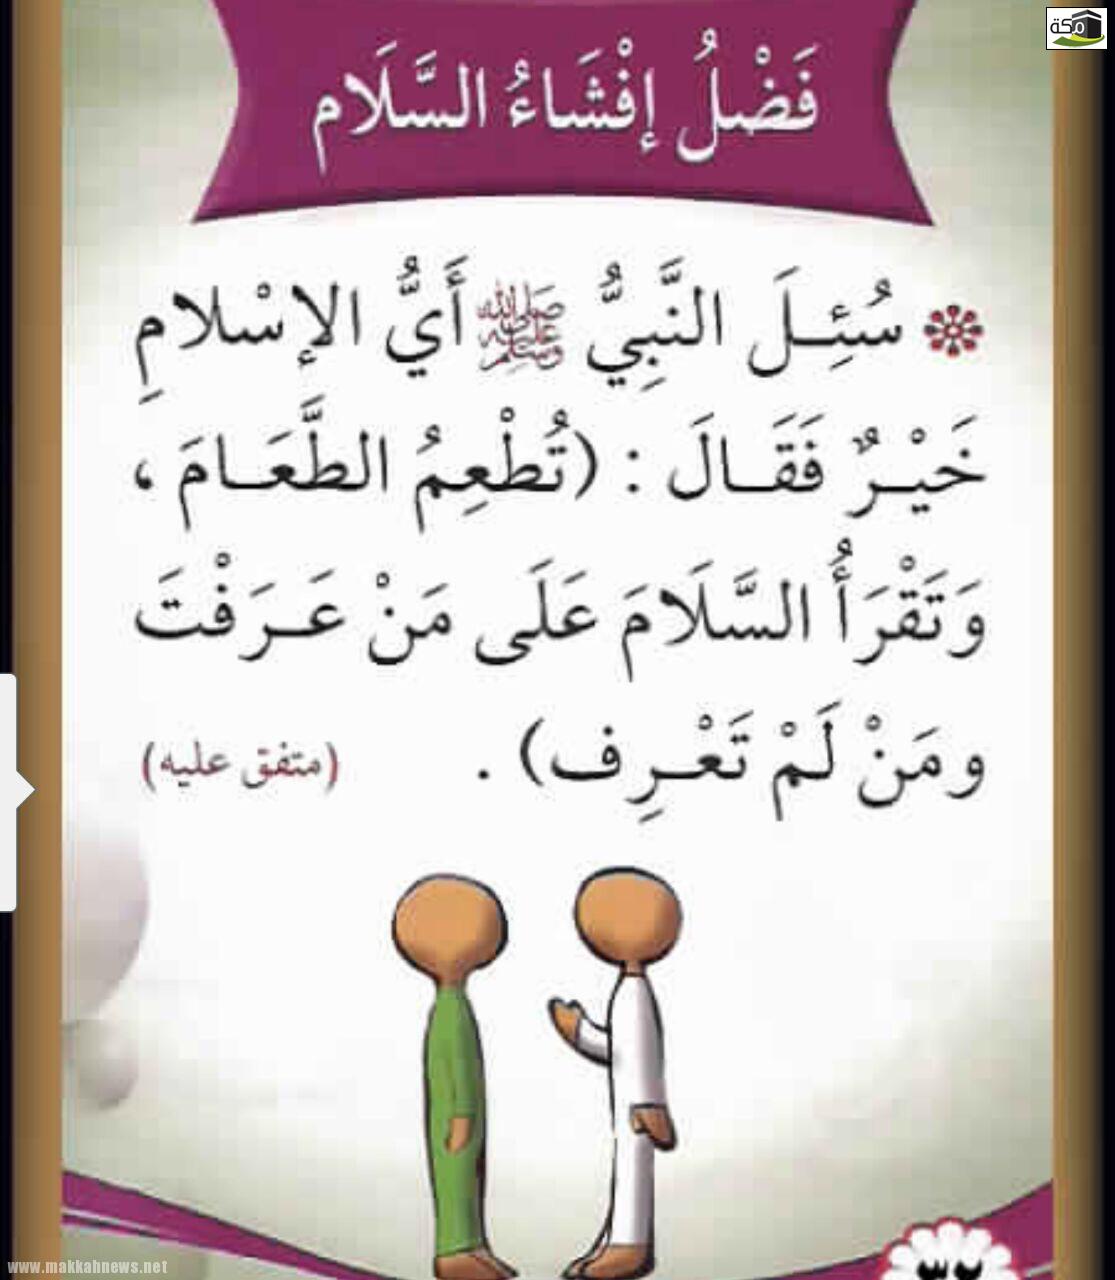 مكة
فَضْلُ إِفْشَاءُ السَّلَامِ
سُئِلَ النَّبِيُّ ﷺ أَيُّ الإِسْلامِ
خَيْرٌ فَقَالَ : (تُطْعِمُ الطَّعَامَ ،
وَتَقْرَأُ السَّلَامَ عَلَى مَنْ عَرَفْتَ
ومَنْ لَمْ تَعْرِف) .
(متفق عليه)
٣٢
www.makkahnews.net